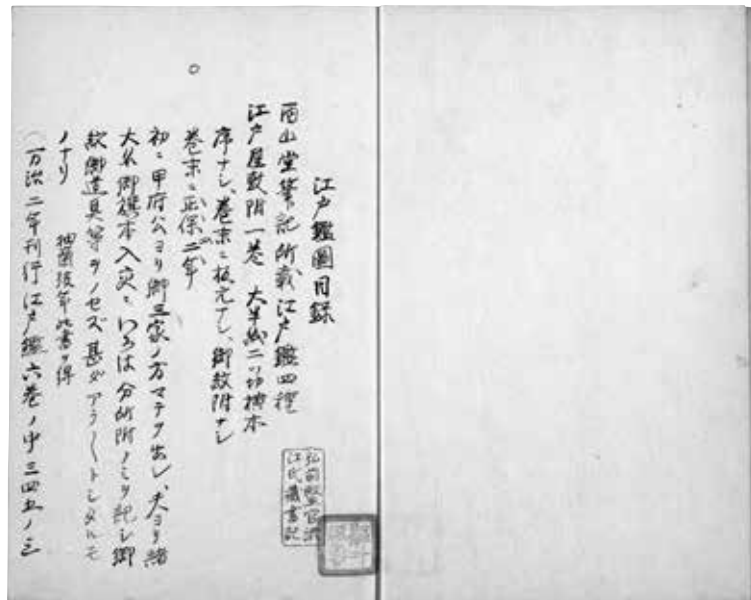 江戸鑑圖目録
酉山堂筆記所載江戸鑑四種
江戸屋敷附一巻 大半紙二ツ切横本
序ナシ、巻末ニ板元ナシ、御紋附ナシ
巻末ニ正保二年
○
初ニ甲府公ヨリ御三家ノ方マテヲ出シ、夫ヨリ諸
大名御旗本入交ニいろは分所附ノミヲ紀シ御
紋御道具等ヲノセズ甚ダアラ〱トシタルモ
ノナリ 抽斎後年此書ヲ得
(万治二年刊行江戸鑑六巻ノ中三四五ノ三
弘前醫官澁
江氏藏書記